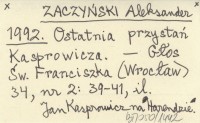 ZACZYŃSKI Aleksander
1992. Ostatnia przystań
Kasprowicza. — Głos
Św. Franciszka (Wrocław)
34, nr 2: 39-41, il.
Jan Kasprowicz na "Harendzie".